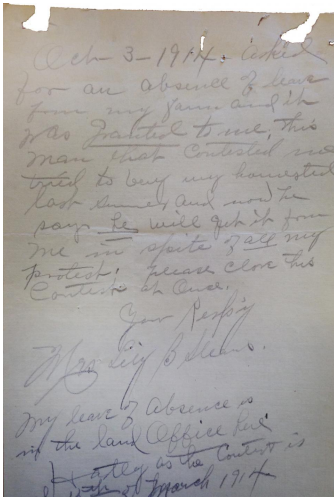 Oct 3-1914. asked
for an absence of leave
from my farm and it
was Granted to me, this
man that Contested me
tried to buy my homested
last summer and now he
says he will get it from
me in spite of all my
protest. please close this
Contest at Once.
Your Respy
Mrs Lily B
My leave of absence is
in the land Office
as the Contest is
of March 1914